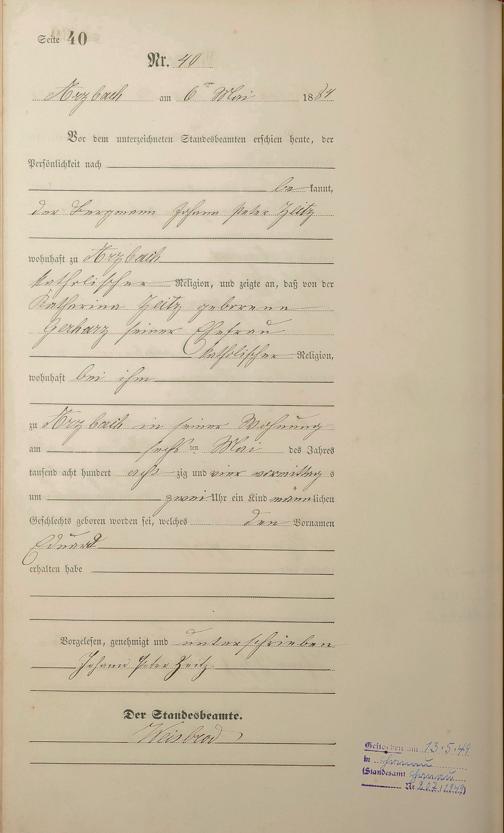 Seite 40
Nr. 40
Arzbach am 6ten Mai 1884
Vor dem unterzeichneten Standesbeamten erschien heute, der
Persönlichkeit nach
be kannt,
der Bergmann Johann Peter
wohnhaft zu Arzbach
katholischer Religion, und zeigte an, daß von der
Katharina geborene
Gerharz seiner Ehefrau
katholischer Religion,
wohnhaft bei ihm
zu Arzbach in seiner Wohnung
am sechs ten Mai des Jahres
tausend acht hundert acht zig und vier vormittag s
um zwei Uhr ein Kind männlichen
Geschlechts geboren worden sei, welches den Vornamen
Eduard
erhalten habe
Vorgelesen, genehmigt und unterschrieben
Johann Peter
Der Standesbeamte.
Weisbrod
Gestorben am 13.5.49
in Hanau
(Standesamt Hanau
Nr. 227/1949)